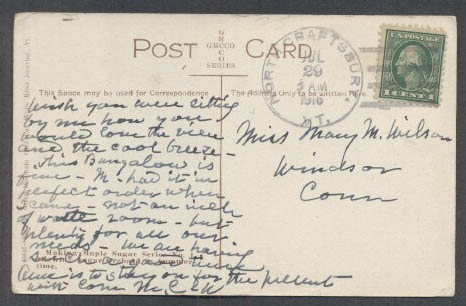 POST CARD
GMCCO
SERIES
This Space may be used for Correspondence
The Address Only to be written Here.
NORTH CRAFTSBURY,
JUL
29
AM
1916
VT.
U.S. POSTAGE
1 CENT 1
Wish you were sitting
by me now you
would love the view
and the cool breeze -
This Bungalow is
fine - M. had it in
perfect order when
I came - not an inch
of waste room - but
plenty for all our
needs - We are having
such a good time
is to stay on for the present
with love
Making Maple Sugar Series
Miss Mary M. Wilson
Windsor
Conn